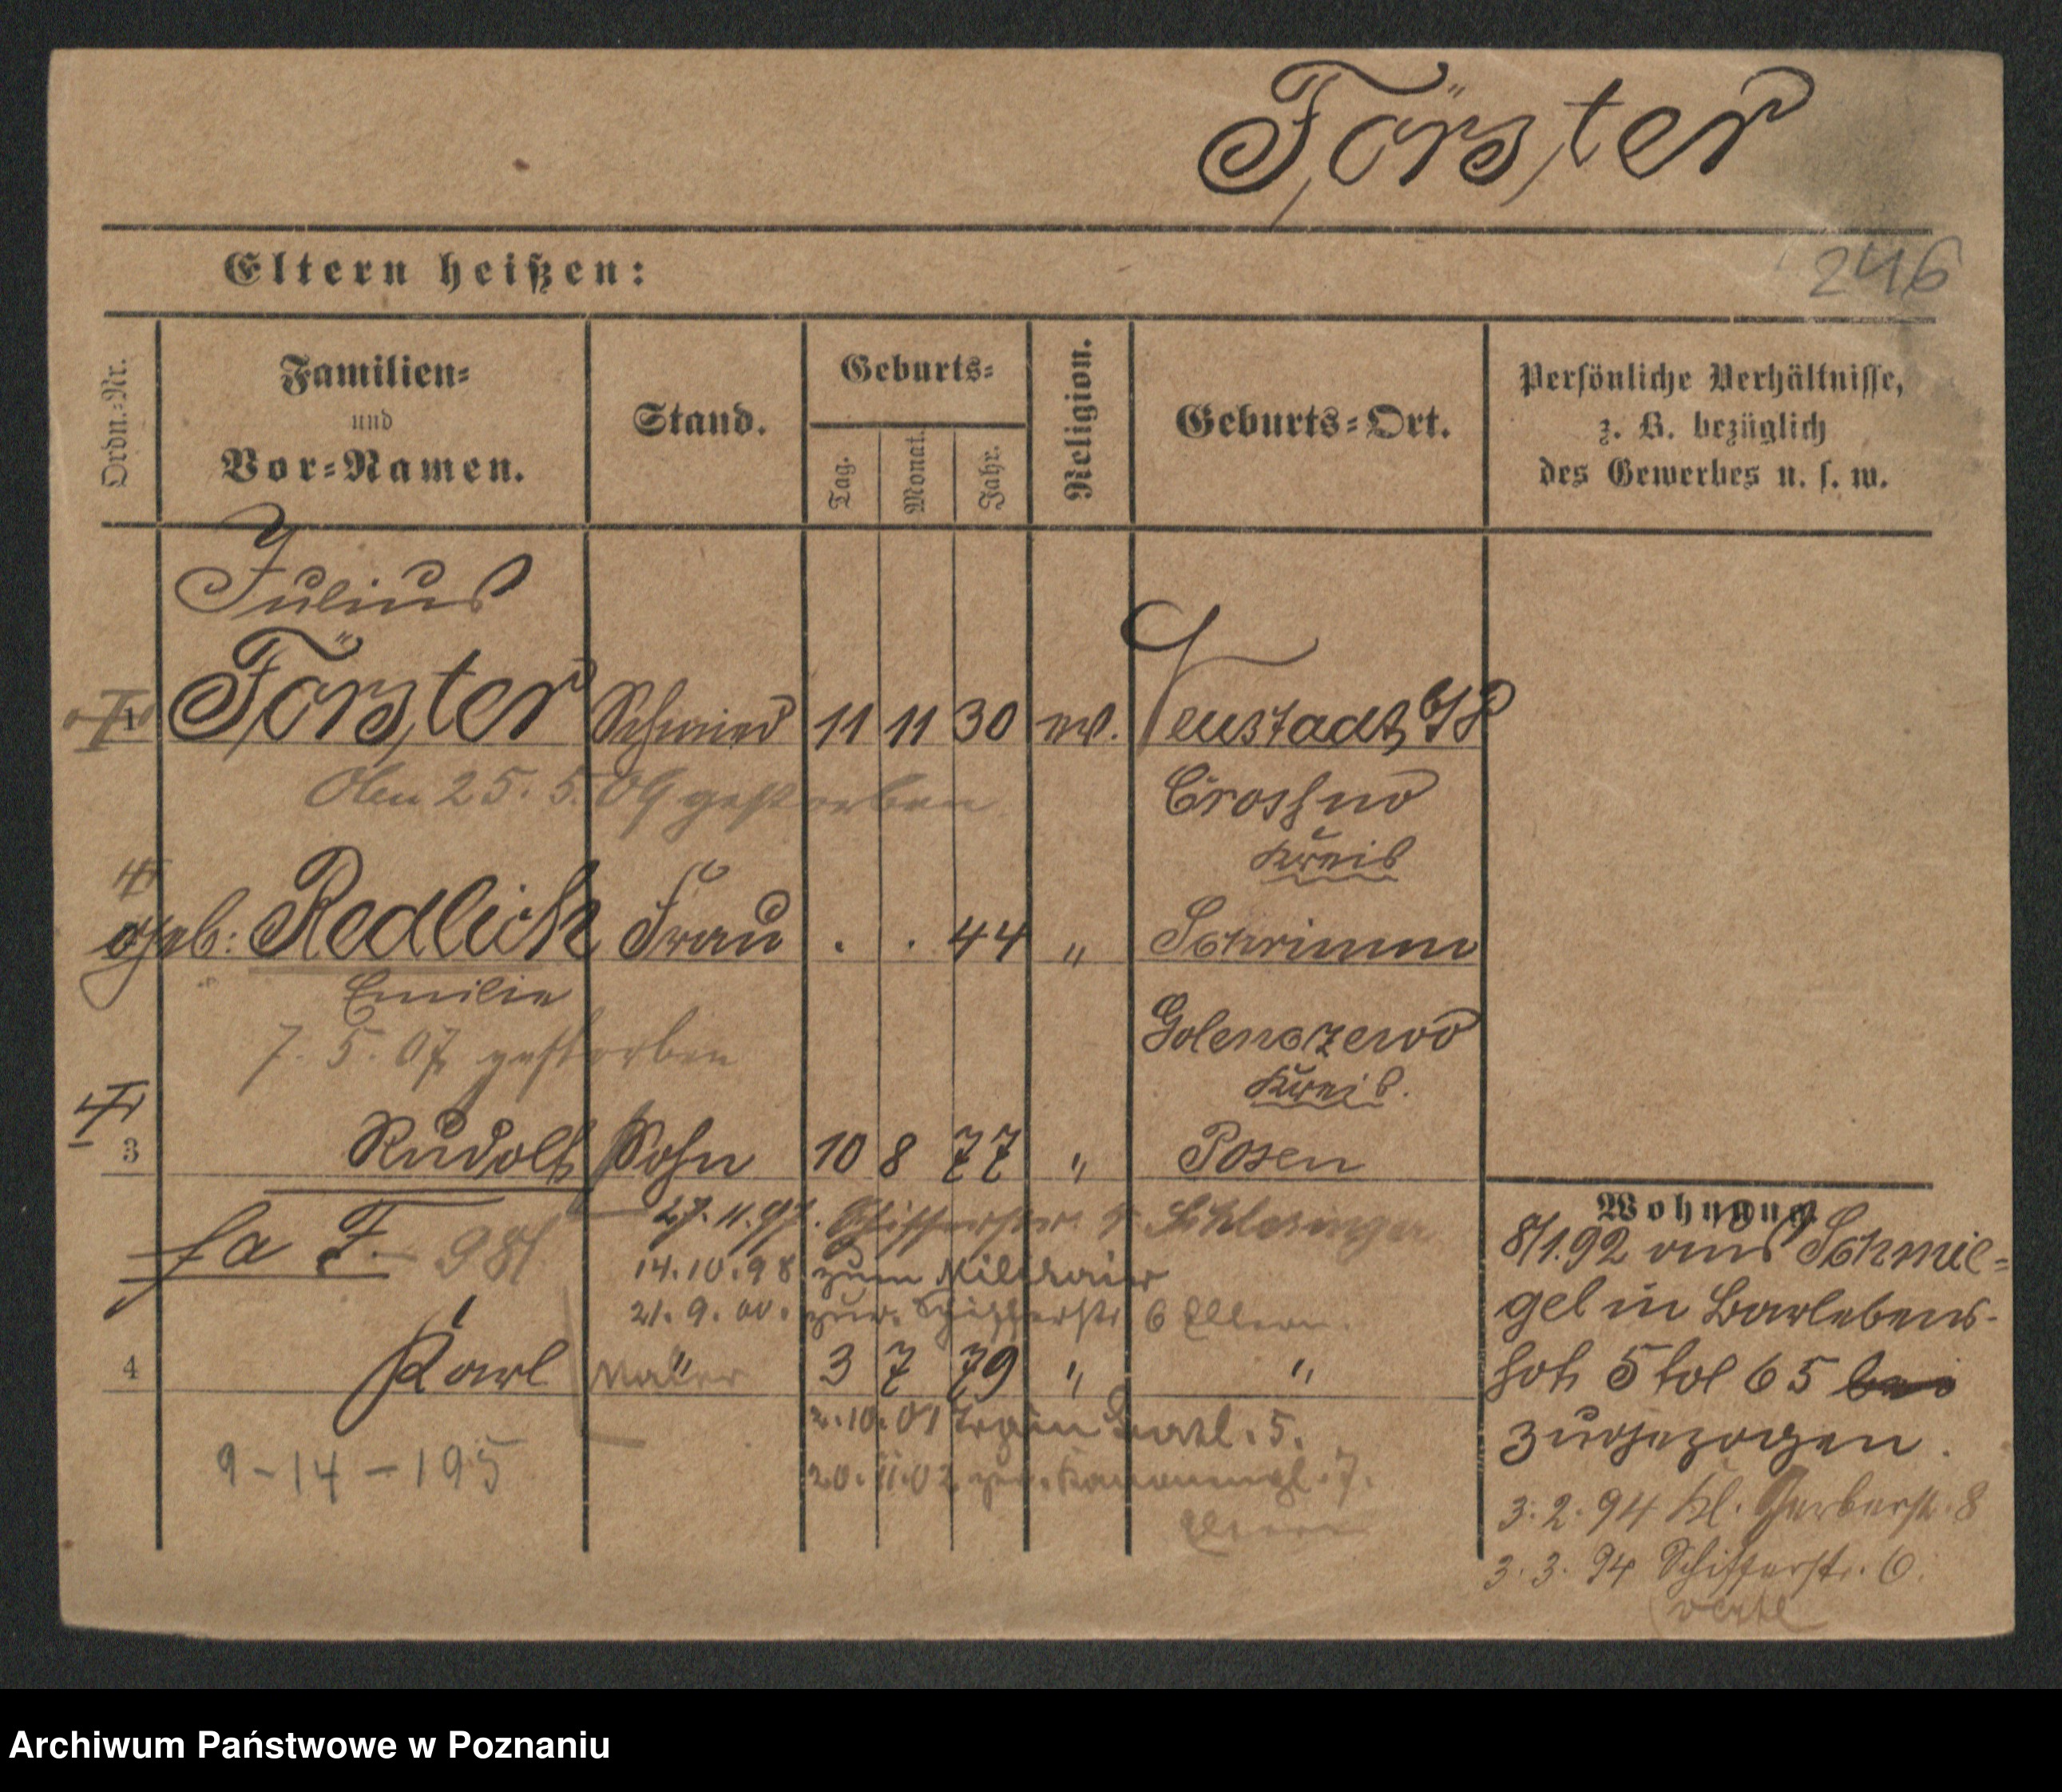 Förster
246
Eltern heißen:
Ordn.-Nr.
Familien-
und
Vor-Namen.
Stand.
Geburts-
Tag.
Monat.
Jahr.
Religion.
Geburts-Ort.
Persönliche Verhältnisse,
z. B. bezüglich
des Gewerbes u. s. w.
Julius
1 Förster Schmied 11 11 30 ev. Neustadt
25. 5. 09 gestorben
Kreis
geb: Redlich Frau . . 44 " Schrimm
Emilie
7. 5. 07 gestorben
Golenczewo
Kreis.
3 Rudolf Sohn 10 8 77 " Posen
27. 11. 97. Schifferstr. Schlesinger
fa F. 981
14.10.98 zum Militair
21. 9. 00. zur. Schifferstr 6 Eltern.
4 Karl " Maler 3 7 79 " "
2.10.01
20.11.02 zur. Kanonenpl. 7.
Eltern
9-14-195
Wohnung.
8/1.92 aus Schmie-
gel in Barlebens-
hof 5 bei
zugezogen.
3. 2. 94 Kl. Gerberstr. 8
3. 3. 94 Schifferstr. 6.
verte
Archiwum Państwowe w Poznaniu